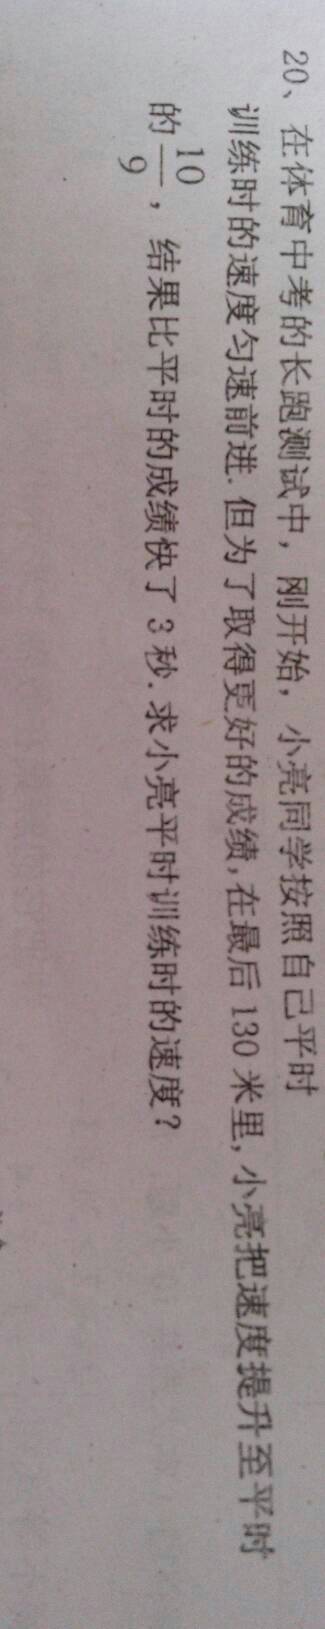 20、在体育中考的长跑测试中，刚开始，小亮同学按照自己平时
训练时的速度匀速前进.但为了取得更好的成绩,在最后130米里,小亮把速度提升至平时
的10/9，结果比平时的成绩快了3秒.求小亮平时训练时的速度?